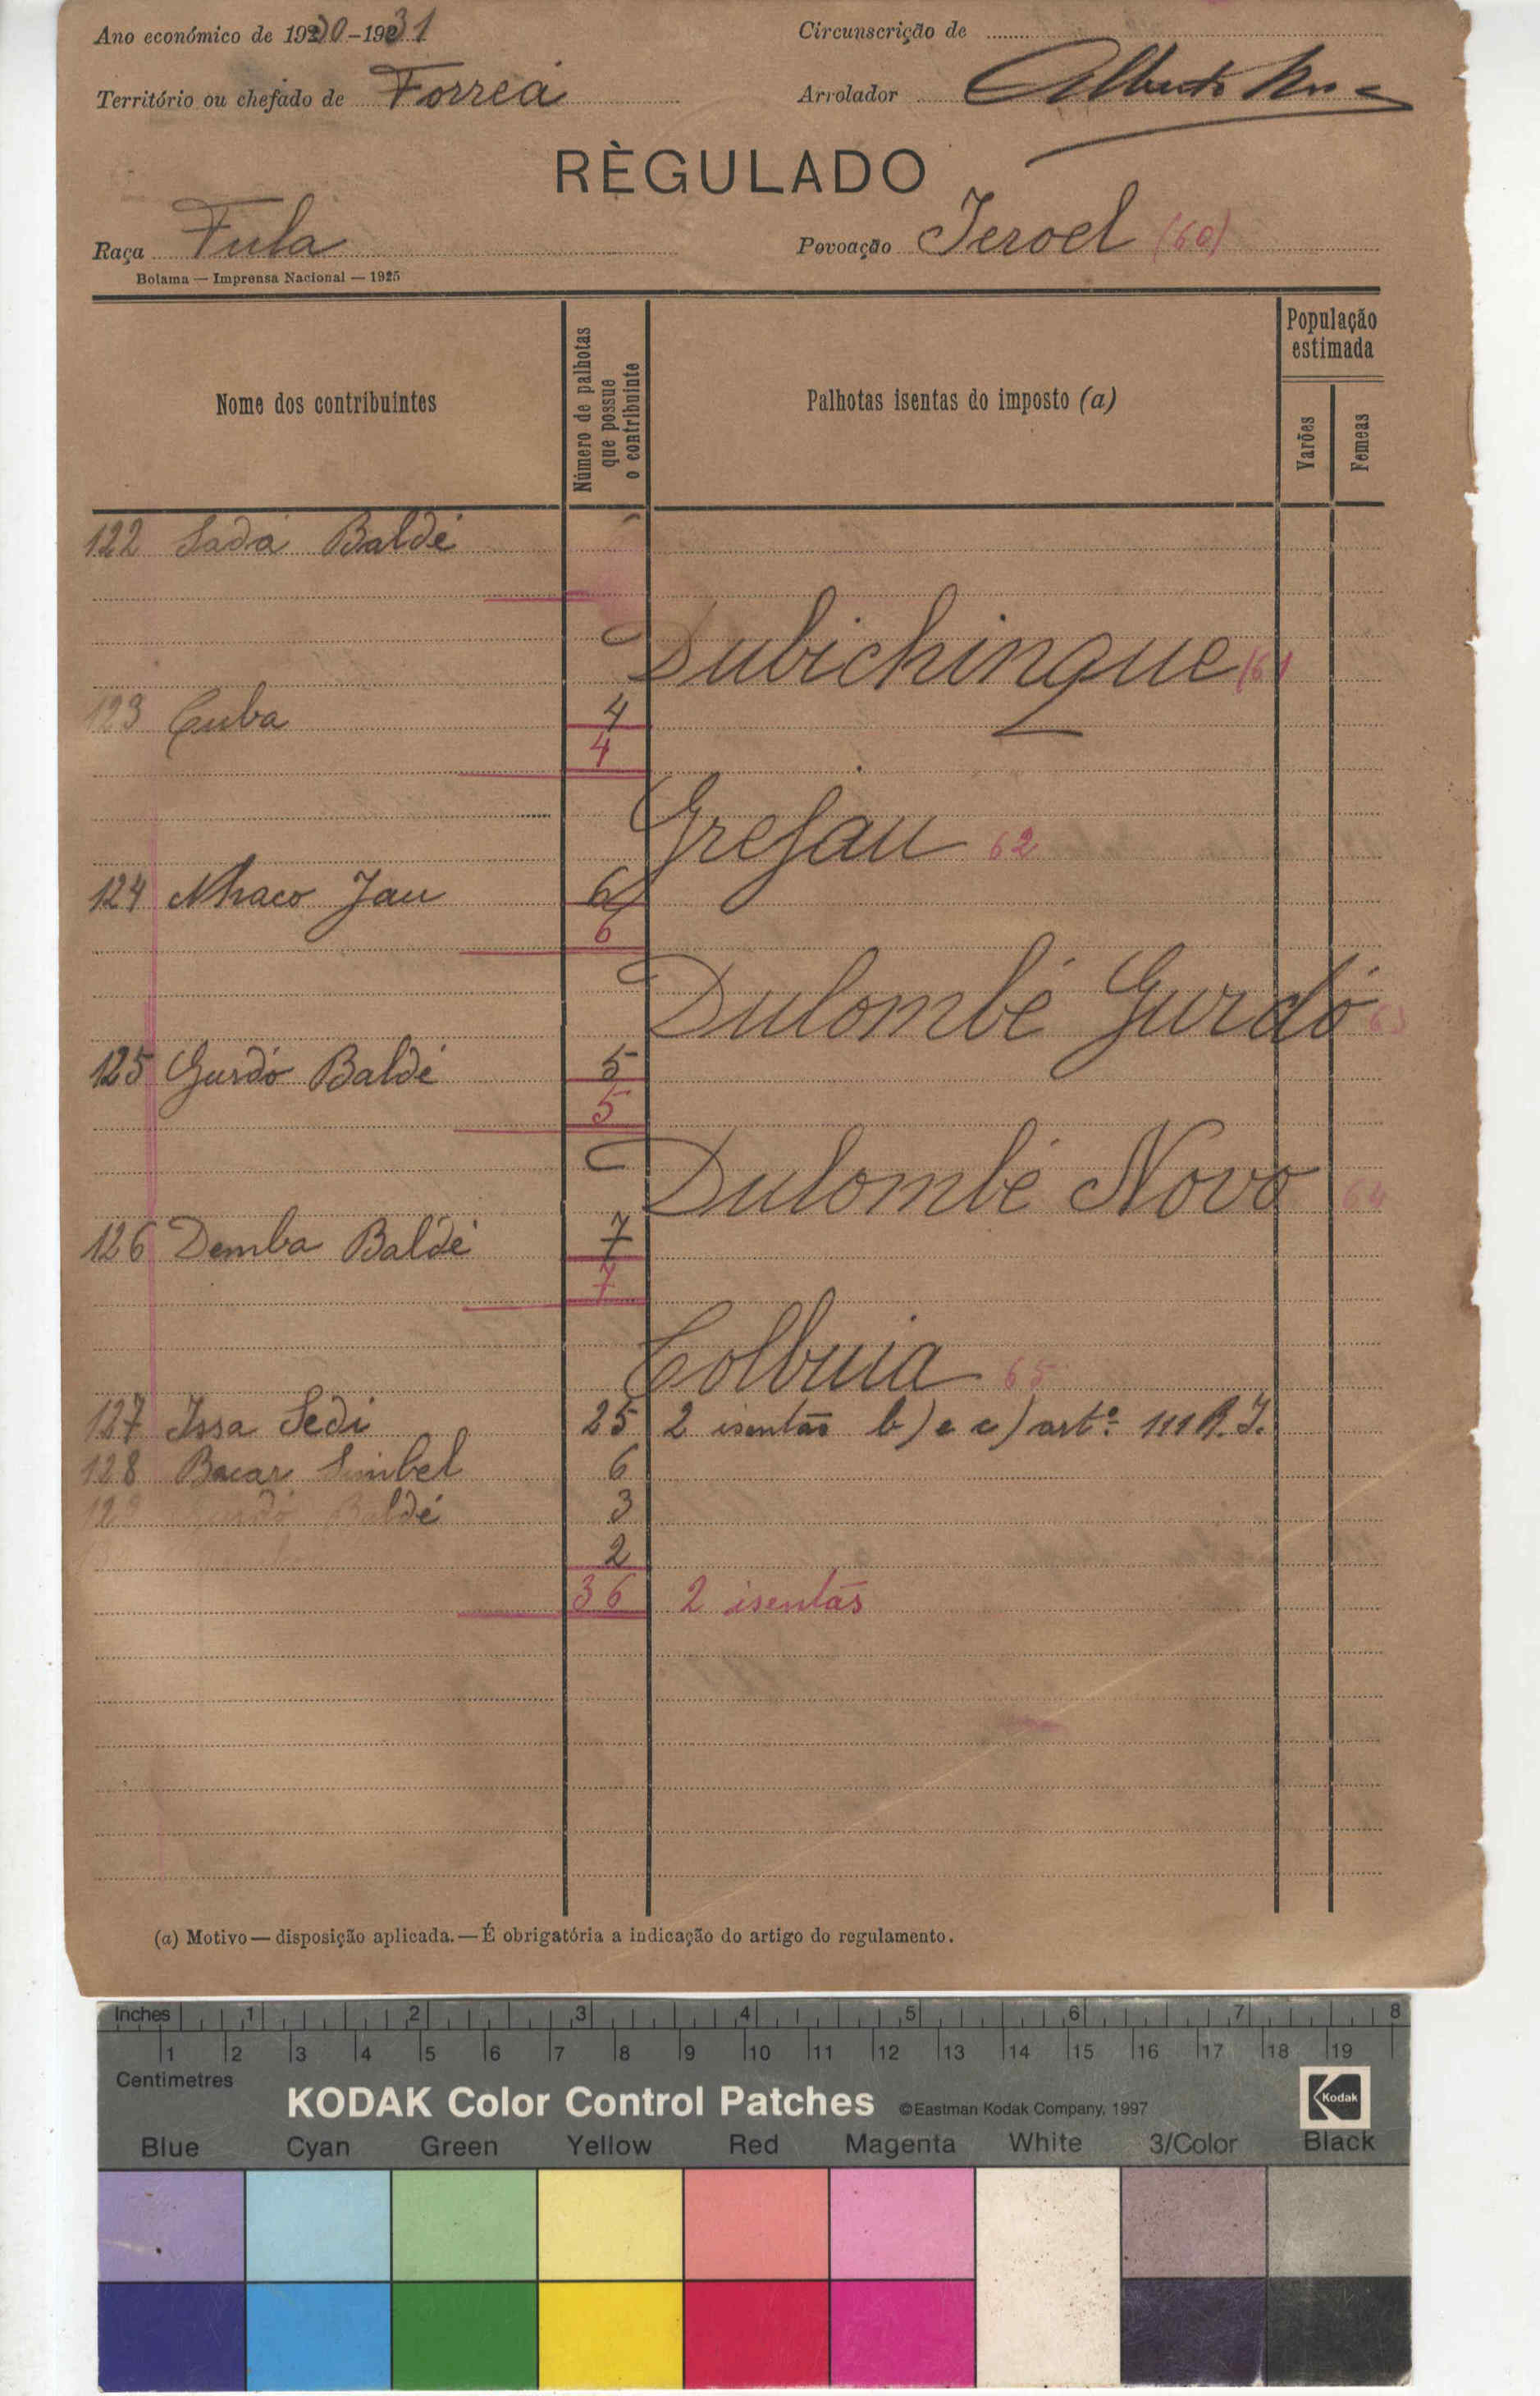 Ano económico de 1930-1931
Circunscrição de
Território ou chefado de Forreá
Arrolador Alberto
RÈGULADO
Raça Fula
Povoação Jeroel (60)
Bolama — Imprensa Nacional — 1925
Nome dos contribuintes
Número de palhotas que possue o contribuinte
Palhotas isentas do imposto (a)
População estimada
Varões
Femeas
122 Sadá Baldé
Dubichinque (61
123 Cuba 4
4
Grejau 62
124 Nhaco Jau 6
6
Dulombé Gurdó 63
125 Gurdó Baldé 5
5
Dulombé Novo 64
126 Demba Baldé 7
7
Colbuia 65
127 Issa Sedi 25 2 isentas b) e c) artº 111 R. I.
128 Bacar Simbel 6
129 Gurdó Baldé 3
2
36 2 isentas
(a) Motivo — disposição aplicada. — É obrigatória a indicação do artigo do regulamento.
Inches 1 2 3 4 5 6 7 8
1 2 3 4 5 6 7 8 9 10 11 12 13 14 15 16 17 18 19
Centimetres
KODAK Color Control Patches ©Eastman Kodak Company, 1997 Kodak
Blue Cyan Green Yellow Red Magenta White 3/Color Black